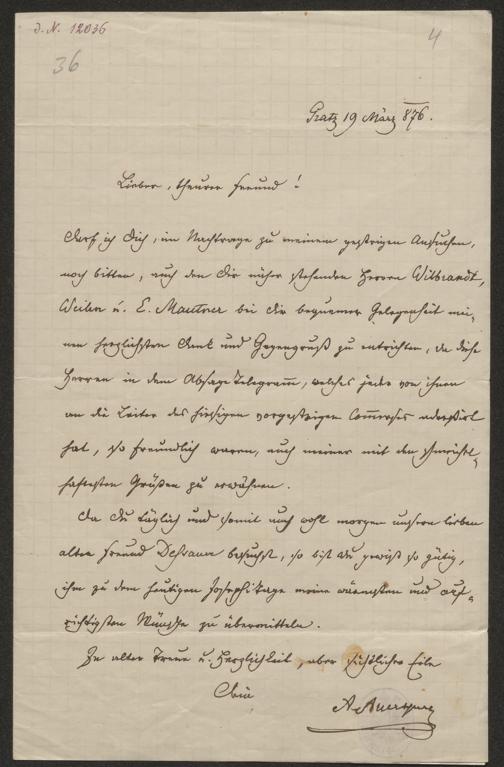 J. N. 12036
4
36
Gratz 19 März 876.
Lieber, theurer Freund!
Darf ich Dich, im Nachtrage zu meinem gestrigen Ansuchen,
noch bitten, auch den Dir näher stehenden Herren Wilbrandt,
Weilen u. E. Mautner bei Dir bequemer Gelegenheit mei-
nen herzlichsten Dank und Gegengruß zu entrichten, da diese
Herren in dem Absage Telegram̅, welches jeder von ihnen
an die Leiter des hiesigen vorgestrigen Com̅erses adressirt
hat, so freundlich waren, auch meiner mit den schmeichel-
haftesten Grüßen zu erwähnen.
Da Du täglich und somit auch wohl morgen unsern lieben
alten Freund Dessauer besuchst, so bist Du gewiß so gütig,
ihm zu dem heutigen Josephitage meine wärmsten und auf-
richtigsten Wünsche zu übermitteln.
In alter Treue u. Herzlichkeit, aber Eile
Dein
A Auersperg